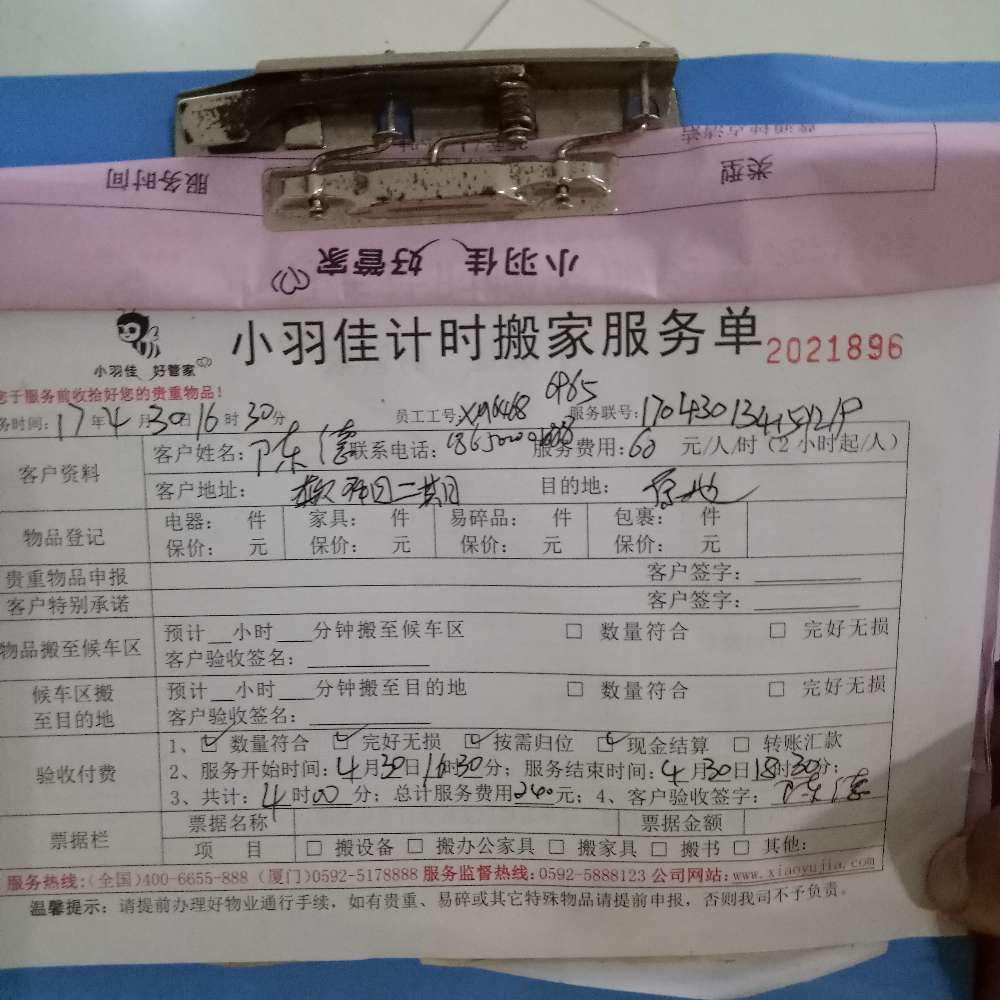 普通快点清洁
类型
服务时间
小羽佳 好管家
小羽佳 好管家
小羽佳计时搬家服务单 2021896
您于服务前收拾好您的贵重物品!
务时间: 17年4月30日16时30分 员工工号: 服务联号:
6965
客户资料 客户姓名: 陈 联系电话: 服务费用: 60 元/人/时(2小时起/人)
客户地址: 二期 目的地: 原地
物品登记 电器: 件 家具: 件 易碎品: 件 包裹: 件
保价: 元 保价: 元 保价: 元 保价: 元
贵重物品申报 客户签字:
客户特别承诺 客户签字:
物品搬至候车区 预计__小时___分钟搬至候车区 □ 数量符合 □ 完好无损
客户验收签名:
候车区搬至目的地 预计__小时___分钟搬至目的地 □ 数量符合 □ 完好无损
客户验收签名:
验收付费 1、☑ 数量符合 ☑ 完好无损 ☑ 按需归位 ☑ 现金结算 □ 转账汇款
2、服务开始时间: 4月30日16时30分; 服务结束时间: 4月30日18时30分;
3、共计: 4时00分; 总计服务费用240元; 4、客户验收签字: 陈
票据栏 票据名称 票据金额
项 目 □ 搬设备 □ 搬办公家具 □ 搬家具 □ 搬书 □ 其他:
服务热线:(全国)400-6655-888 (厦门)0592-5178888 服务监督热线:0592-5888123 公司网站:www.xiaoyujia.com
温馨提示: 请提前办理好物业通行手续,如有贵重、易碎或其它特殊物品请提前申报,否则我司不予负责。